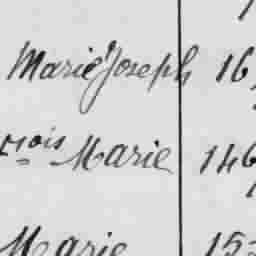 Marie Joseph 16
çois Marie 146
Marie 15